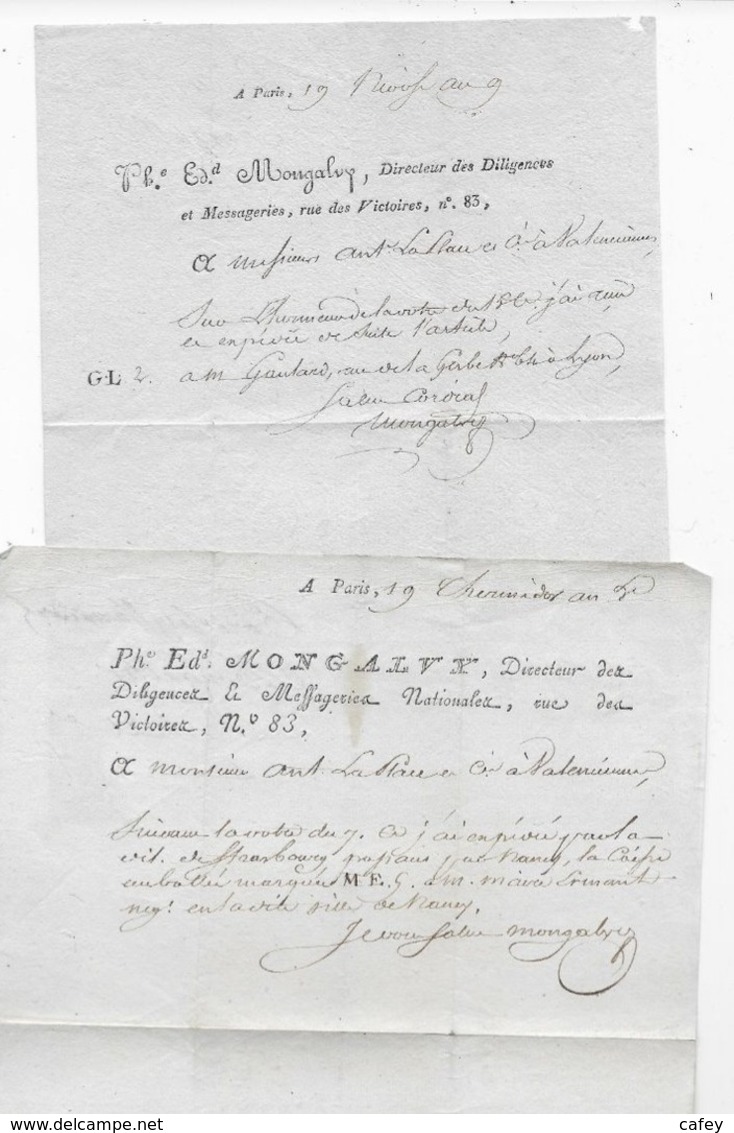 A Paris, 19 Nivose an 9
Ph.e Ed.d Mongalvy, Directeur des Diligences
et Messageries, rue des Victoires, n°. 83,
A Messieurs Ant. LaPlace et Cie à Valenciennes,
l'honneur de la votre du j'ai reçu
et expédié de suite l'article,
GL 2. a M Gautard, rue de la Gerbe à Lyon,
Salut Cordial
Mongalvy
A Paris, 19 Thermidor an
Ph.e Ed.d MONGALVY, Directeur des
Diligences & Messageries Nationales, rue des
Victoires, N.o 83,
A Monsieur Ant. LaPlace et Cie à Valenciennes,
Suivant la votre du 7. Ct j'ai expédié par la
dil. de Strasbourg passant par Nancy, la Caisse
emballée marquée M E. 5. a M.
neg.t en la dite ville de Nancy.
Je vous salue Mongalvy
cafey